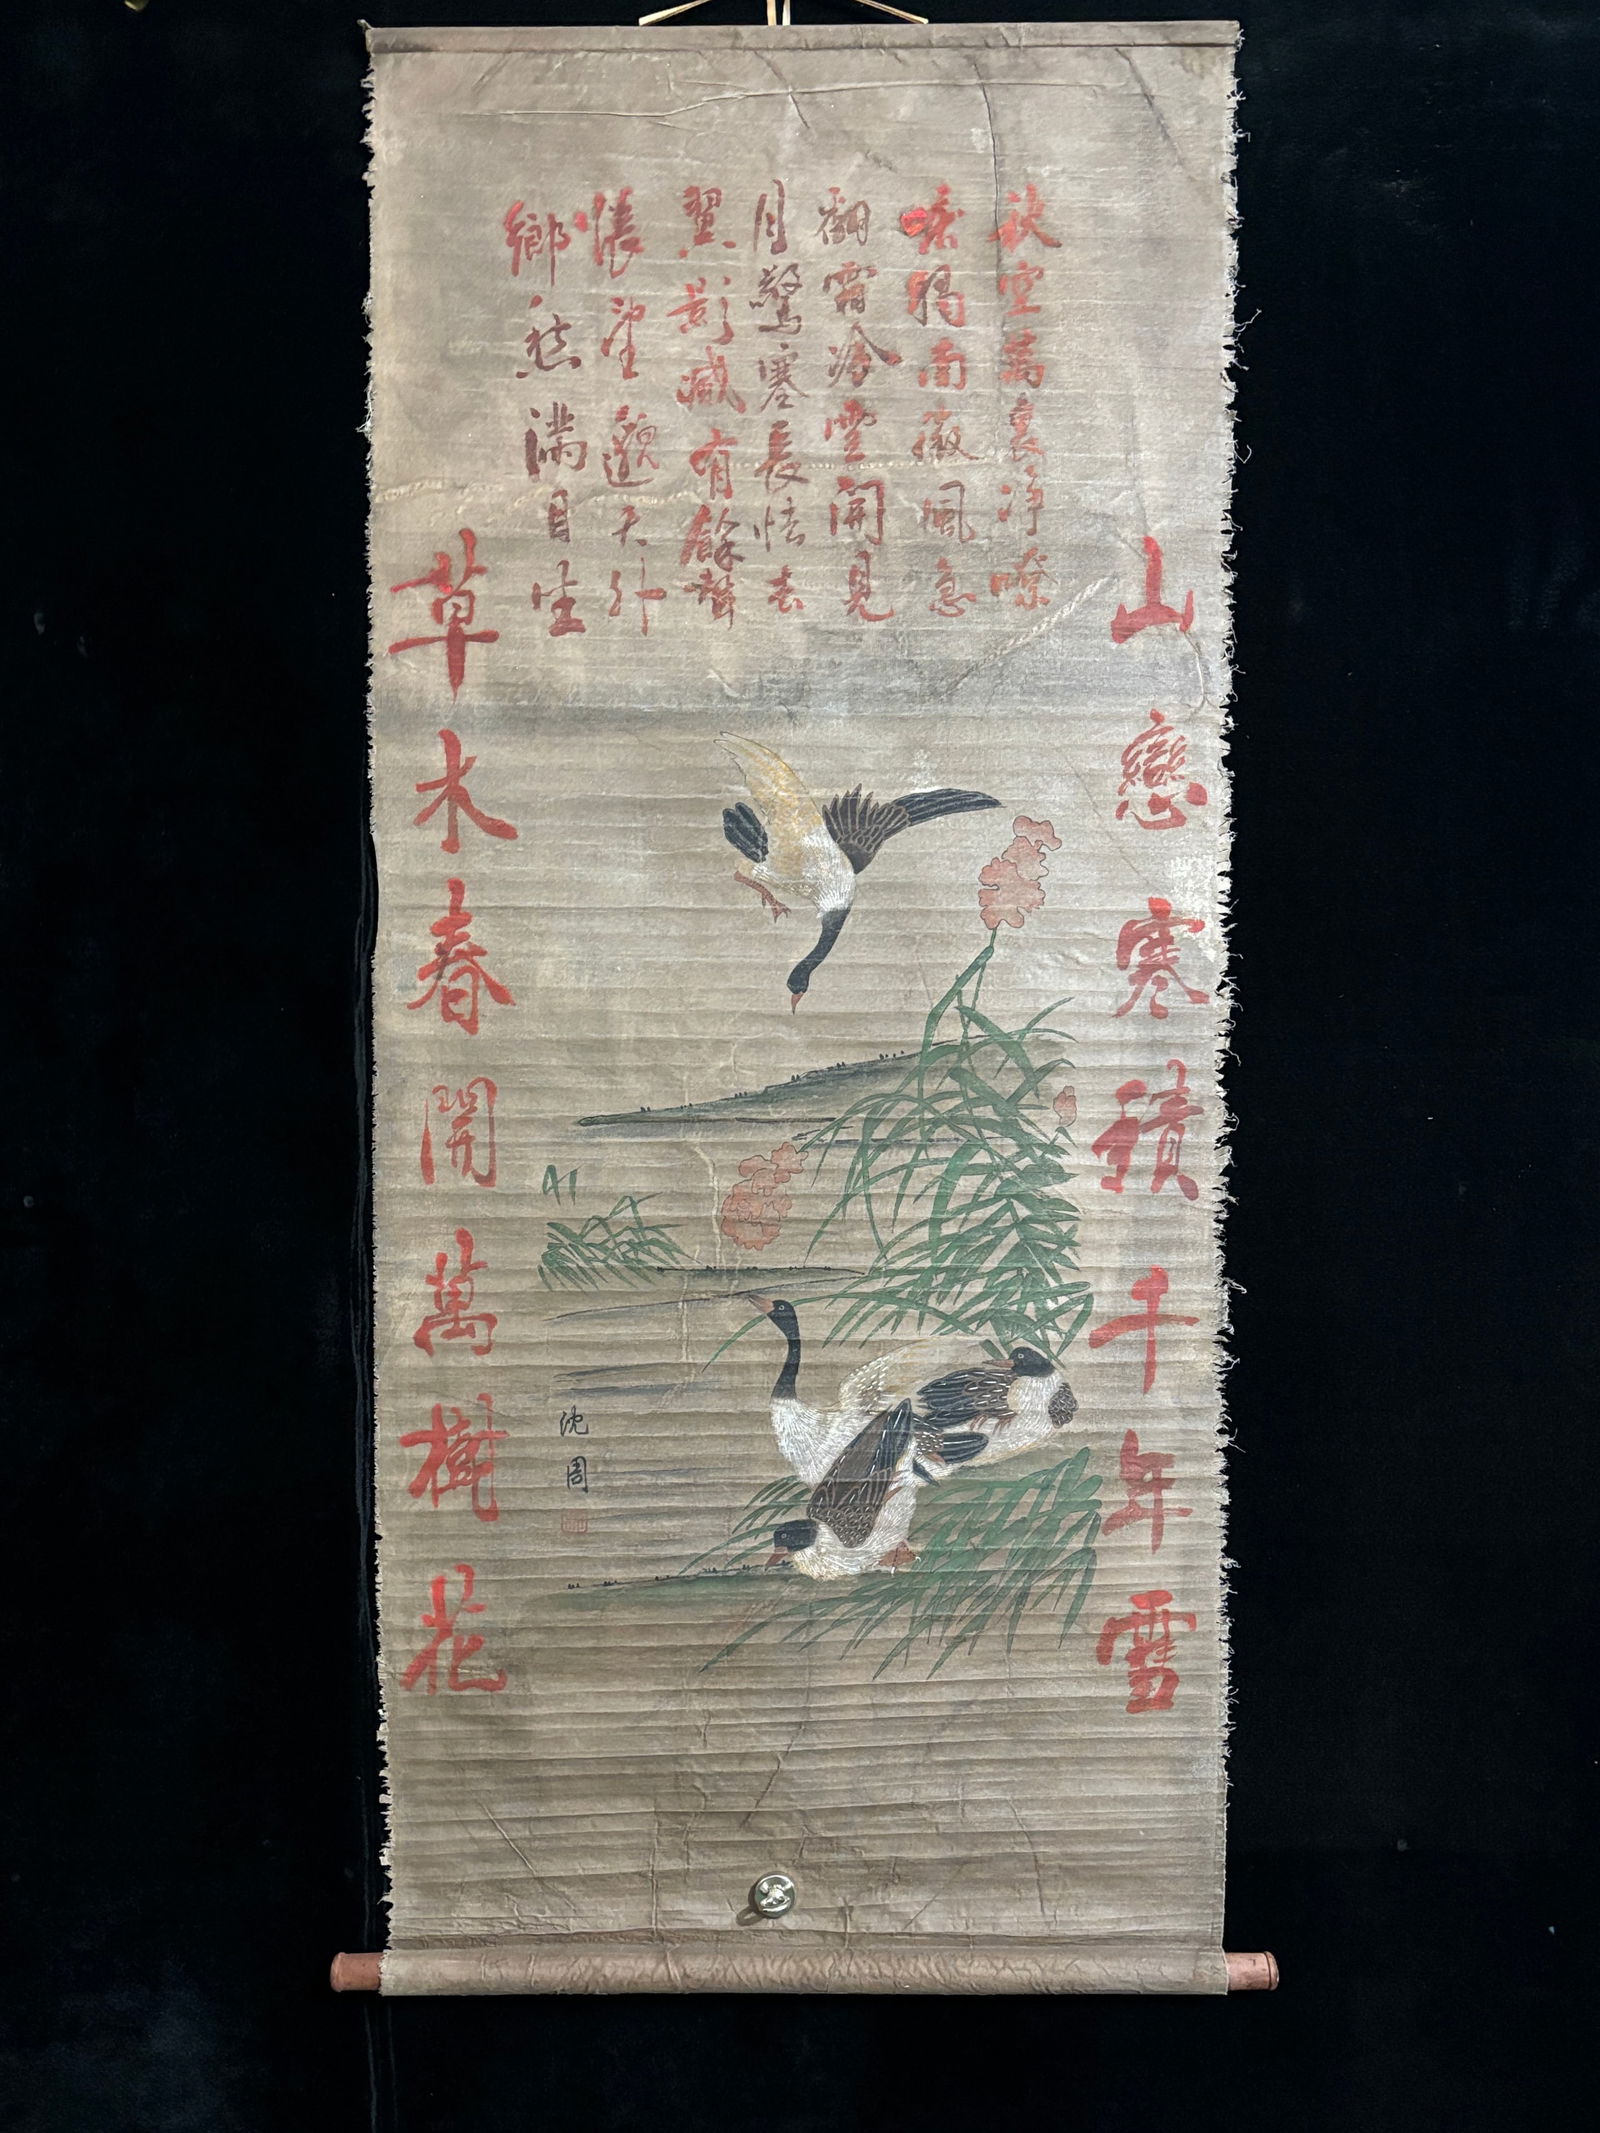 秋空萬裏净嘹
唳獨南徵風急
翻霜冷雲開見
月驚塞長怯去
翼影滅有餘聲
悵望邈天外
鄉愁滿目生
山戀寒積千年雪
草木春開萬樹花
沈周